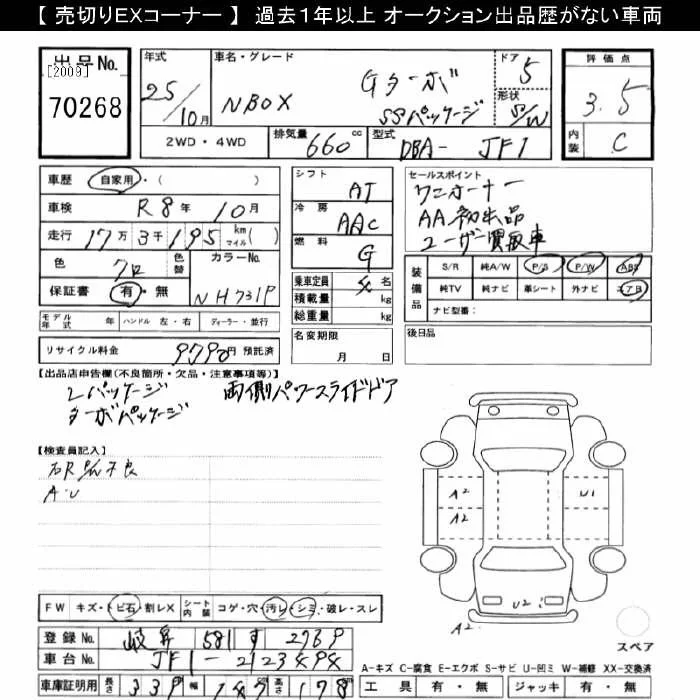 【 売切りEXコーナー 】 過去1年以上 オークション出品歴がない車両
出品No.
[2009]
70268
年式
25/10月
車名・グレード
NBOX
Gターボ
SSパッケージ
ドア
5
形状
S/W
評価点
3.5
内装
C
2WD・4WD
排気量
660 cc
型式
DBA- JF1
車歴 自家用・( )
車検 R8年 10月
走行 17万3千195 km マイル ( )
色 クロ
色替
カラーNo.
NH731P
保証書 有・無
シフト AT
冷房 AAC
燃料 G
乗車定員 4 名
積載量 kg
総重量 kg
名変期限
月 日
セールスポイント
ワンオーナー
AA初出品
ユーザー買取車
装備品
S/R 純A/W P/S P/W ABS
純TV 純ナビ 革シート 外ナビ エアB
ナビ型番:
後日品
モデル年式 年 ハンドル 左・右 ディーラー・並行
リサイクル料金 9790円 預託済
【出品店申告欄(不良箇所・欠品・注意事項等)】
Lパッケージ 両側パワースライドドア
ターボパッケージ
【検査員記入】
A・U
A2
A2
U1
U2
A2
スペア
FW キズ・ト゛ヒ石・割レX シート内装 コゲ・穴・汚レ・シミ・破レ・スレ
登録No. 岐阜 581 す 2769
車台No. JF1-2123494
車庫証明用 長さ 339 幅 147 高さ 178
A-キズ C-腐食 E-エクボ S-サビ U-凹ミ W-補修 XX-交換済
工具 有・無 ジャッキ 有・無